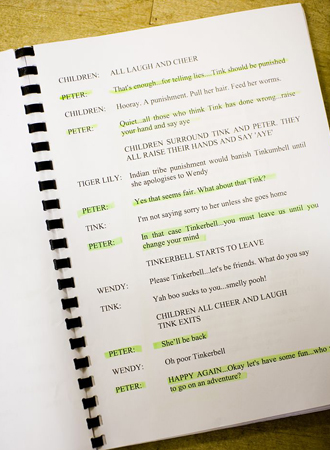 CHILDREN: ALL LAUGH AND CHEER
PETER: That's enough...for telling lies....Tink should be punished
CHILDREN: Hooray. A punishment. Pull her hair. Feed her worms.
PETER: Quiet...all those who think Tink has done wrong...raise
your hand and say aye
CHILDREN SURROUND TINK AND PETER. THEY
ALL RAISE THEIR HANDS AND SAY 'AYE'
TIGER LILY: Indian tribe punishment would banish Tinkumbell until
she apologises to Wendy
PETER: Yes that seems fair. What about that Tink?
TINK: I'm not saying sorry to her unless she goes home
PETER: In that case Tinkerbell...you must leave us until you
change your mind
TINKERBELL STARTS TO LEAVE
WENDY: Please Tinkerbell...let's be friends. What do you say
TINK: Yah boo sucks to you...smelly pooh!
CHILDREN ALL CHEER AND LAUGH
TINK EXITS
PETER: She'll be back
WENDY: Oh poor Tinkerbell
PETER: HAPPY AGAIN...Okay let's have some fun...who
to go on an adventure?